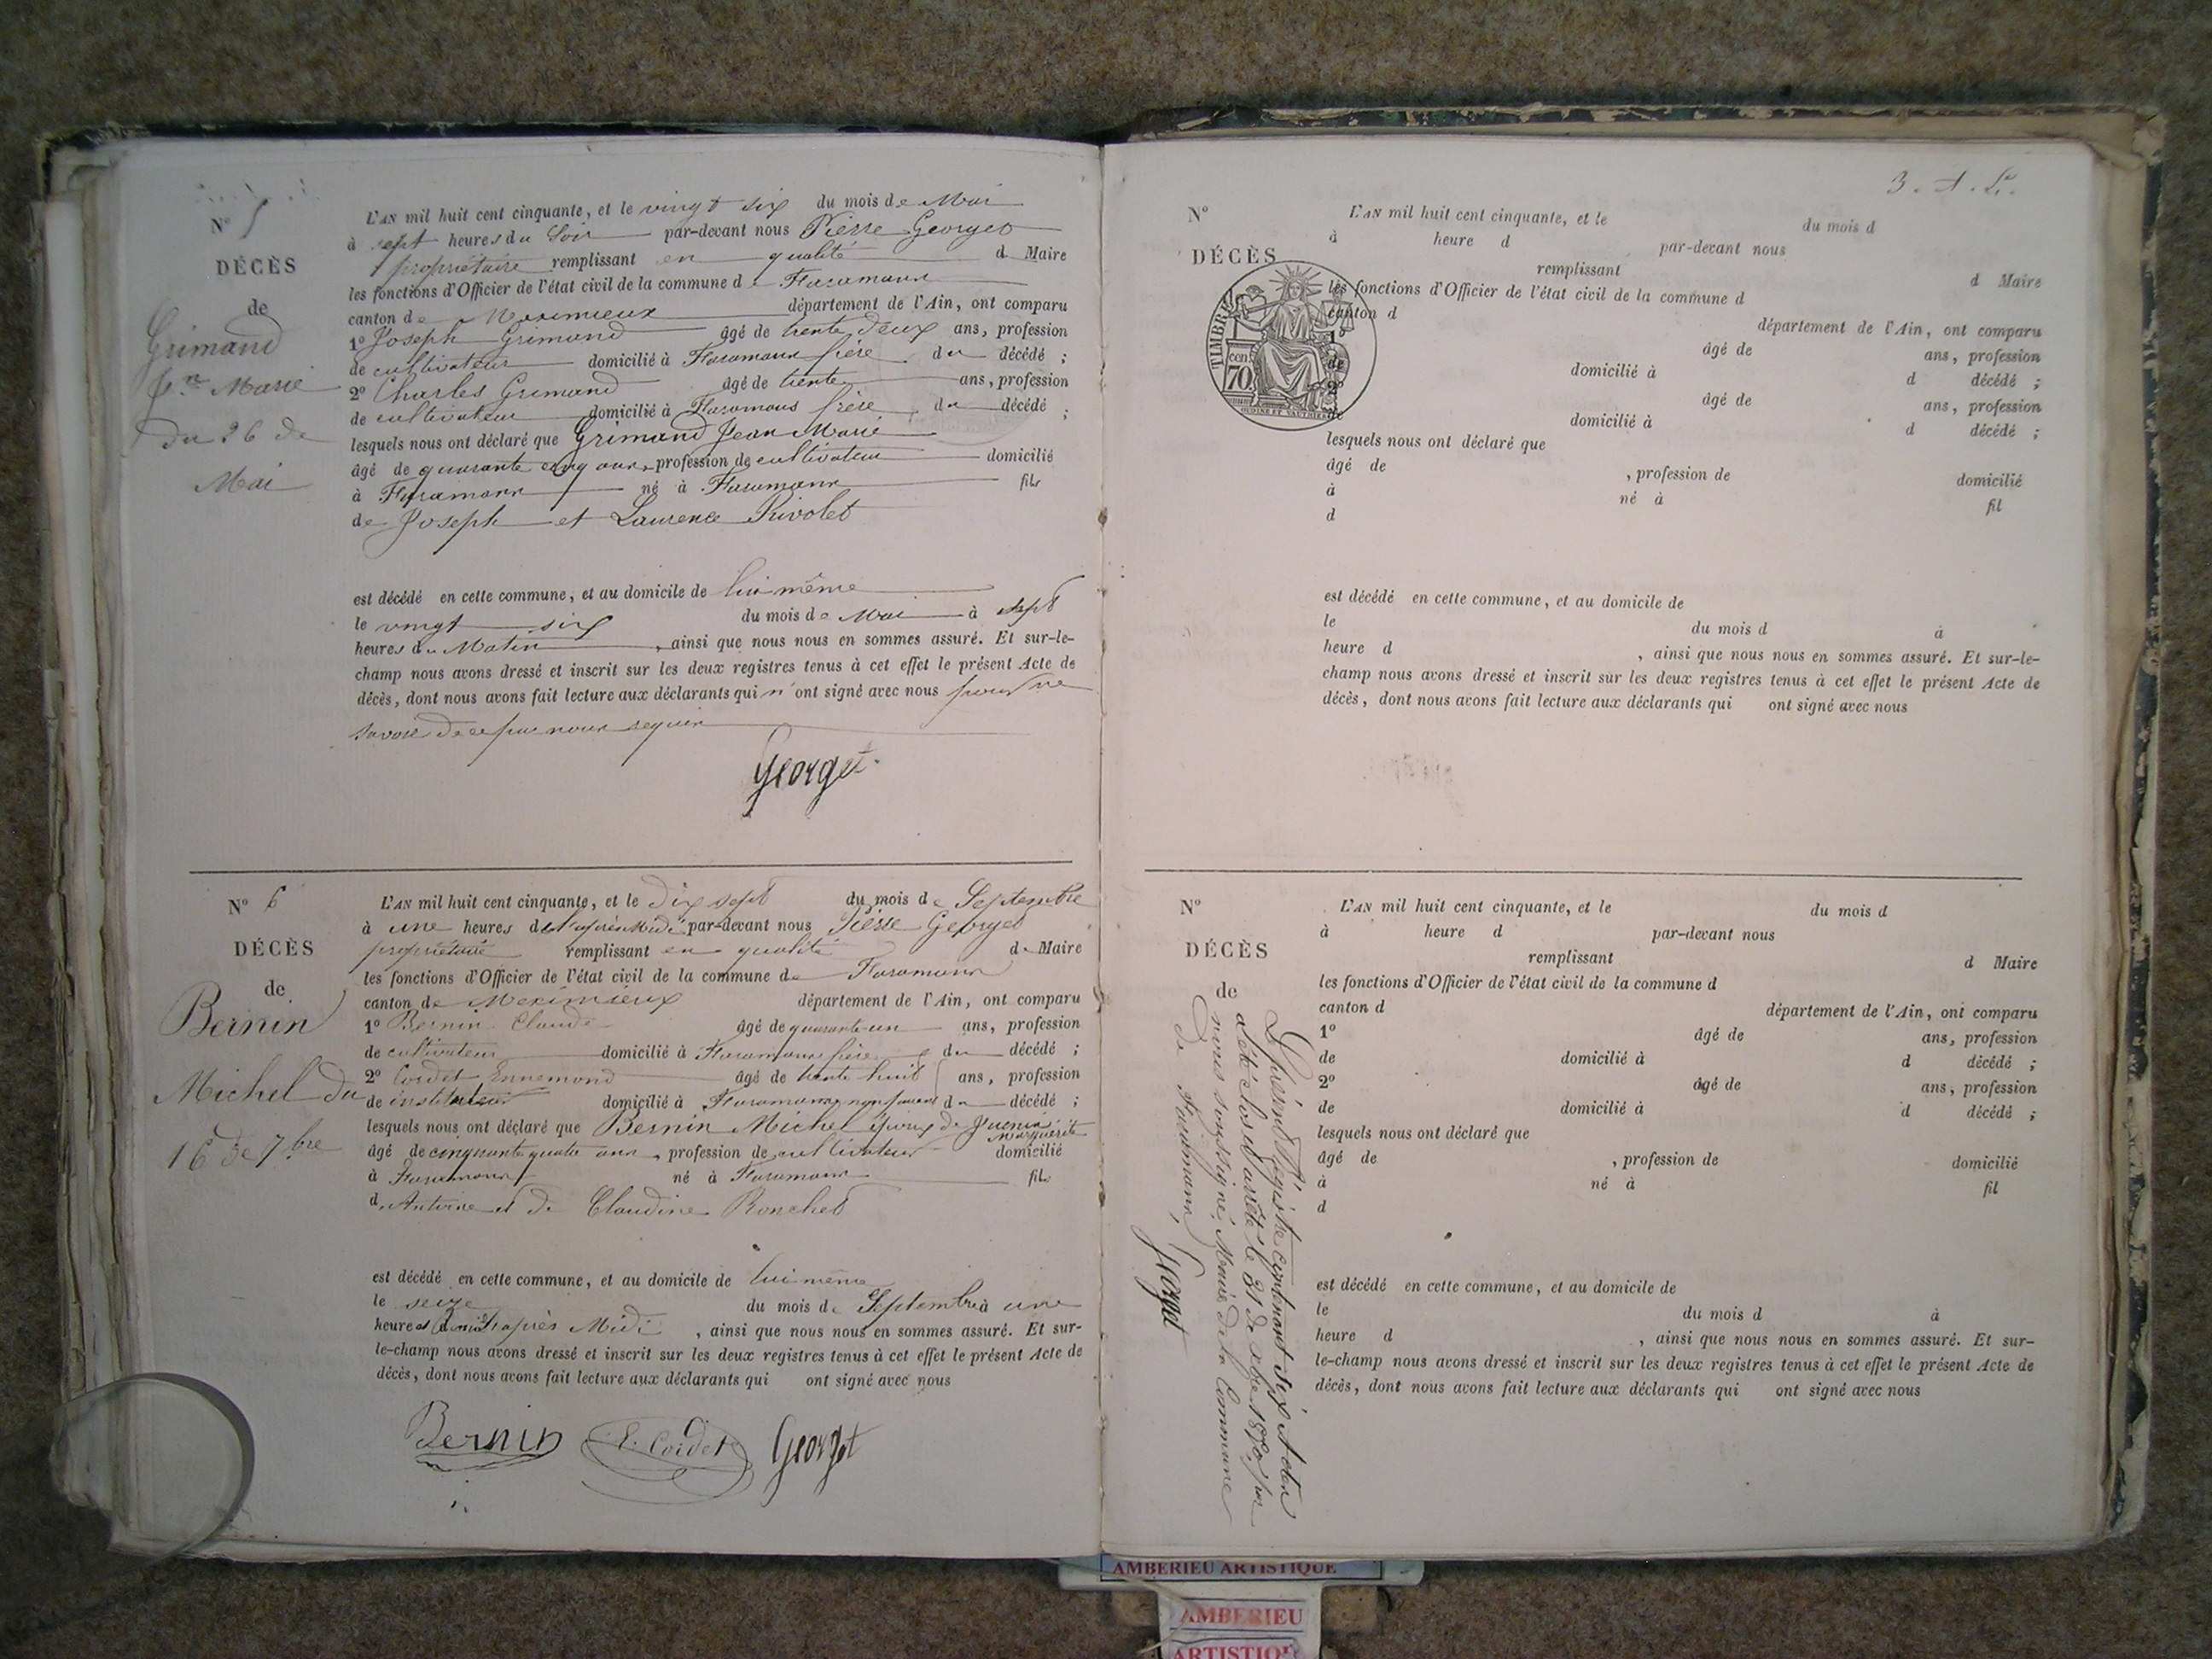 N° 5
DÉCÈS
de
Grimand
Jn Marie
du 26 de
Mai
L'AN mil huit cent cinquante, et le vingt six du mois de Mai
à sept heures du Soir par-devant nous Pierre Georges
propriétaire remplissant en qualité de Maire
les fonctions d'Officier de l'état civil de la commune de Faramans
canton de Meximieux département de l'Ain, ont comparu
1° Joseph Grimand âgé de trente deux ans, profession
de cultivateur domicilié à Faramans frère du décédé ;
2° Charles Grimand âgé de trente ans, profession
de cultivateur domicilié à Faramans frère du décédé ;
lesquels nous ont déclaré que Grimand Jean Marie
âgé de quarante cinq ans, profession de cultivateur domicilié
à Faramans né à Faramans fils
de Joseph et Laurence Rivolet
est décédé en cette commune, et au domicile de lui même
le vingt six du mois de Mai à sept
heures du Matin, ainsi que nous nous en sommes assuré. Et sur-le-
champ nous avons dressé et inscrit sur les deux registres tenus à cet effet le présent Acte de
décès, dont nous avons fait lecture aux déclarants qui n'ont signé avec nous pour ne
savoir de ce par nous requis
Georget
N° 6
DÉCÈS
de
Bernin
Michel du
16 de 7bre
L'AN mil huit cent cinquante, et le dix sept du mois de Septembre
à une heures de l'après Midi par-devant nous Pierre Georges
propriétaire remplissant en qualité de Maire
les fonctions d'Officier de l'état civil de la commune de Faramans
canton de Meximieux département de l'Ain, ont comparu
1° Bernin Claude âgé de quarante-un ans, profession
de cultivateur domicilié à Faramans frère du décédé ;
2° Cordet Ennemond âgé de trente huit ans, profession
de instituteur domicilié à Faramans non parent du décédé ;
lesquels nous ont déclaré que Bernin Michel époux de Juenin
Marguerite
âgé de cinquante quatre ans, profession de cultivateur domicilié
à Faramans né à Faramans fils
d'Antoine et de Claudine Ronchet
est décédé en cette commune, et au domicile de lui même
le seize du mois de Septembre à une
heure et demie après Midi, ainsi que nous nous en sommes assuré. Et sur-
le-champ nous avons dressé et inscrit sur les deux registres tenus à cet effet le présent Acte de
décès, dont nous avons fait lecture aux déclarants qui ont signé avec nous
Bernin E. Cordet Georget
3. A. L.
N°
DÉCÈS
TIMBRE
70 cen
OUDINÉ ET VAUTHIER
L'AN mil huit cent cinquante, et le du mois d
à heure d par-devant nous
remplissant d Maire
les fonctions d'Officier de l'état civil de la commune d
canton d département de l'Ain, ont comparu
1° âgé de ans, profession
de domicilié à d décédé ;
2° âgé de ans, profession
de domicilié à d décédé ;
lesquels nous ont déclaré que
âgé de , profession de domicilié
à né à fil
d
est décédé en cette commune, et au domicile de
le du mois d à
heure d , ainsi que nous nous en sommes assuré. Et sur-le-
champ nous avons dressé et inscrit sur les deux registres tenus à cet effet le présent Acte de
décès, dont nous avons fait lecture aux déclarants qui ont signé avec nous
N°
DÉCÈS
de
L'AN mil huit cent cinquante, et le du mois d
à heure d par-devant nous
remplissant d Maire
les fonctions d'Officier de l'état civil de la commune d
canton d département de l'Ain, ont comparu
1° âgé de ans, profession
de domicilié à d décédé ;
2° âgé de ans, profession
de domicilié à d décédé ;
lesquels nous ont déclaré que
âgé de , profession de domicilié
à né à fil
d
est décédé en cette commune, et au domicile de
le du mois d à
heure d , ainsi que nous nous en sommes assuré. Et sur-
le-champ nous avons dressé et inscrit sur les deux registres tenus à cet effet le présent Acte de
décès, dont nous avons fait lecture aux déclarants qui ont signé avec nous
Le présent Registre contenant six Actes
a été clos et arrêté le 31 de Xbre 1850, par
nous soussigné, Maire de la Commune
de Faramans,
Georget
AMBERIEU ARTISTIQUE
AMBERIEU
ARTISTIQUE